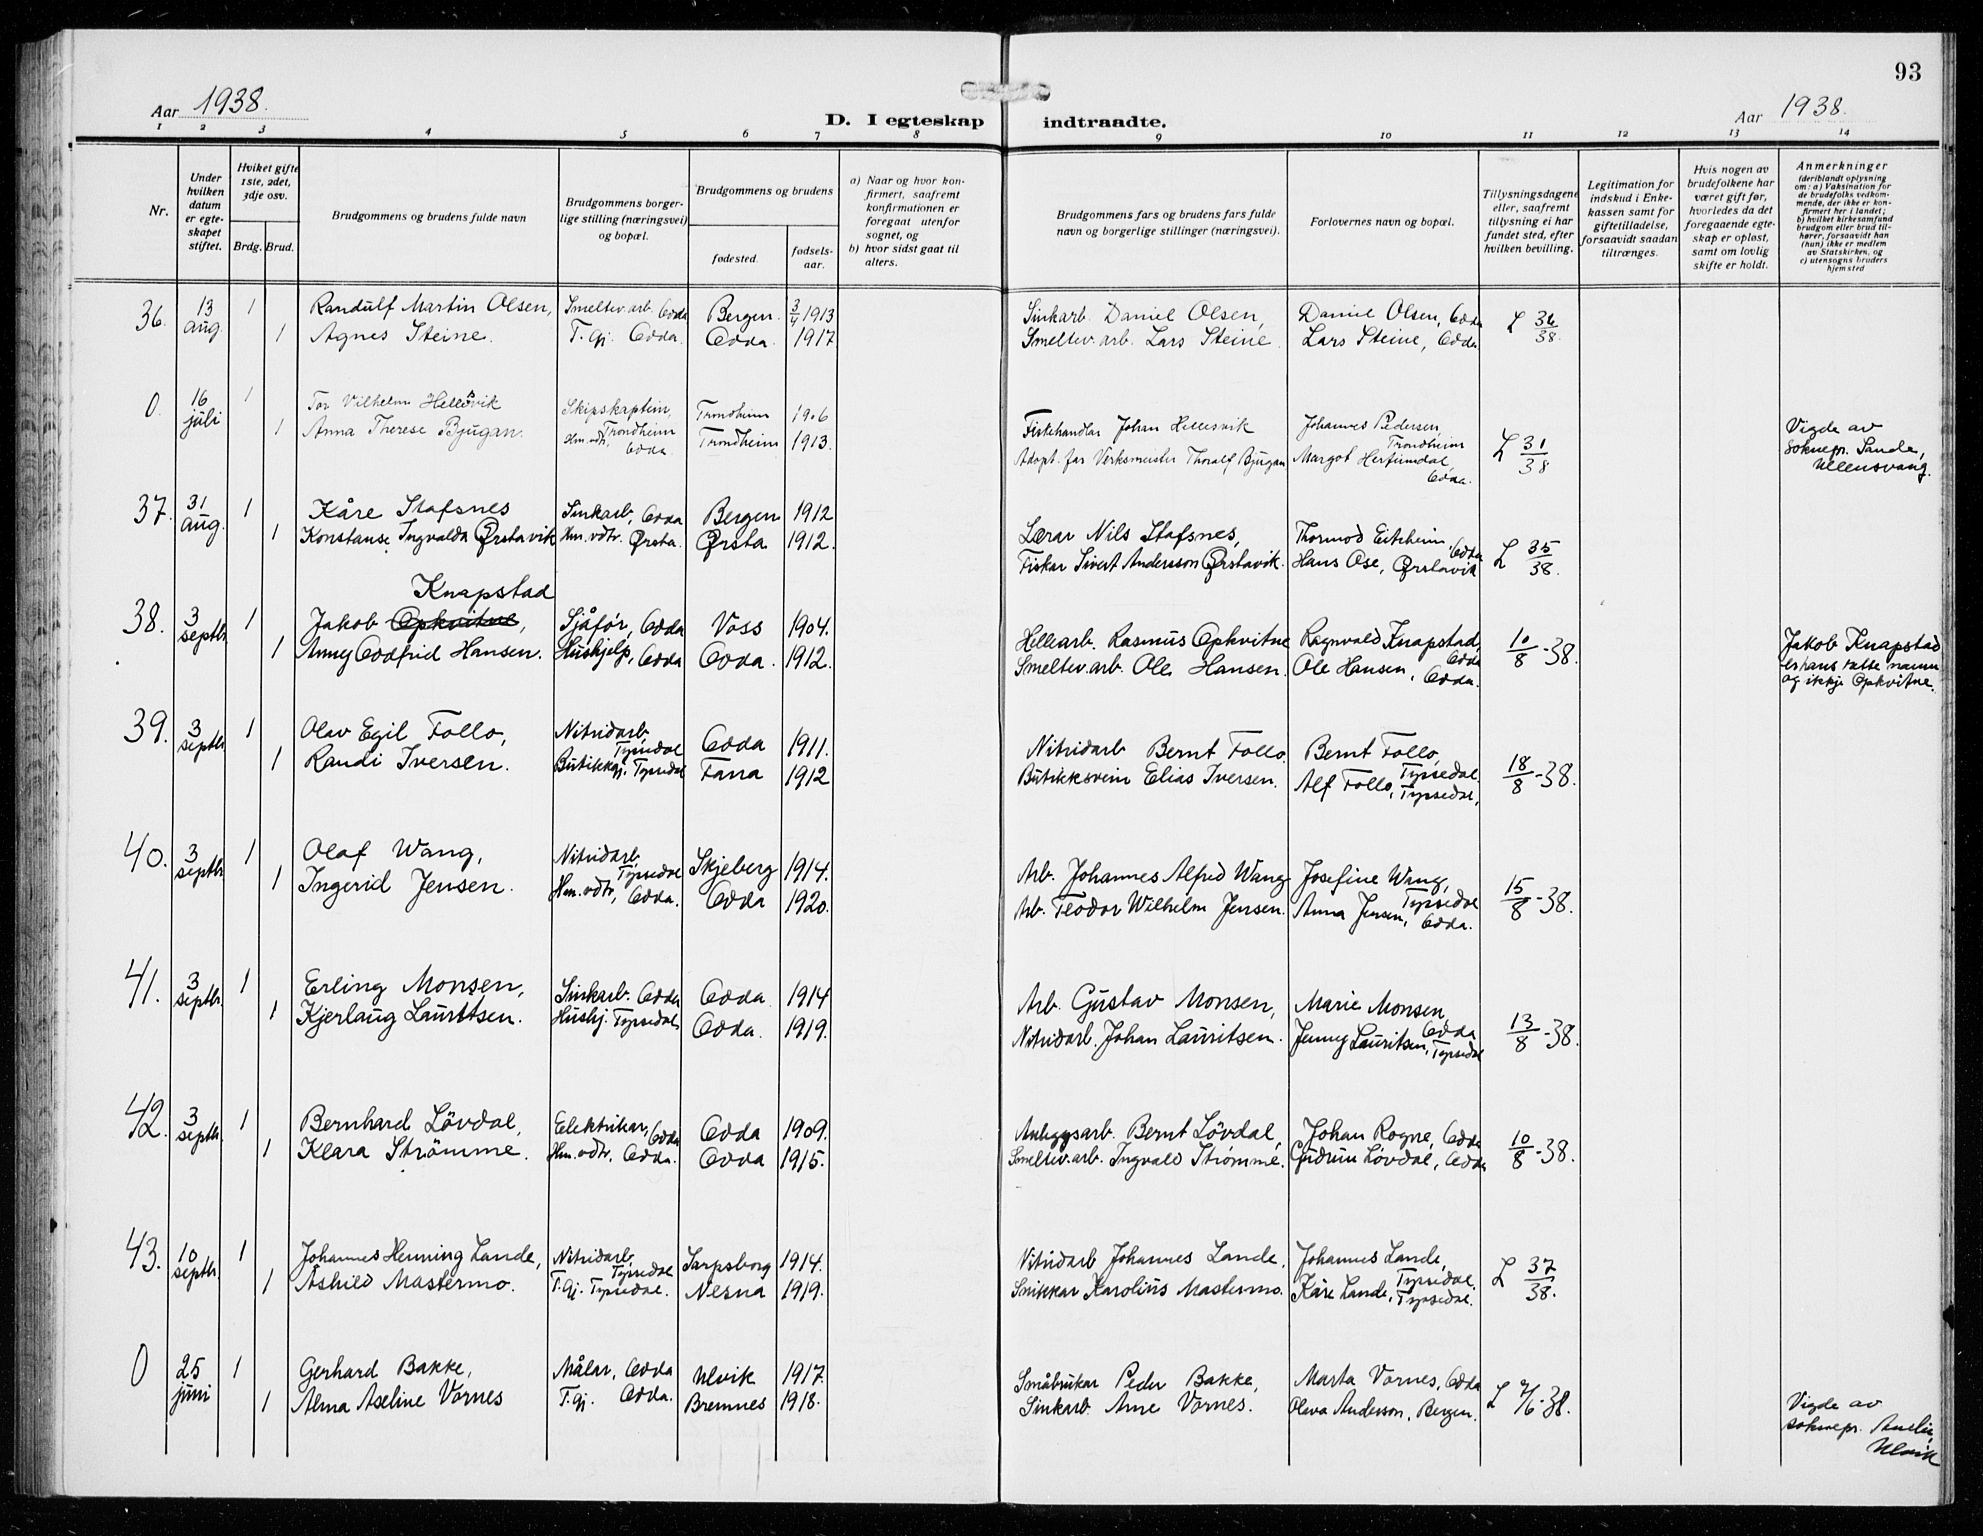 93
Aar 1938.
D. I egteskap indtraadte.
Aar 1938.
1 2 3 4 5 6 7 8 9 10 11 12 13 14
Nr.
Under hvilken datum er egteskapet stiftet.
Hviket gifte 1ste, 2det, 3dje osv.
Brdg. Brud.
Brudgommens og brudens fulde navn
Brudgommens borgerlige stilling (næringsvei) og bopæl.
Brudgommens og brudens
fødested.
fødselsaar.
a) Naar og hvor konfirmert, saafremt konfirmationen er foregaat utenfor sognet, og
b) hvor sidst gaat til alters.
Brudgommens fars og brudens fars fulde navn og borgerlige stillinger (næringsvei).
Forlovernes navn og bopæl.
Tillysningsdagene eller, saafremt tillysning ei har fundet sted, efter hvilken bevilling.
Legitimation for indskud i Enkekassen samt for giftetilladelse, forsaavidt saadan tiltrænges.
Hvis nogen av brudefolkene har været gift før, hvorledes da det foregaaende egteskap er opløst, samt om lovlig skifte er holdt.
Anmerkninger (deriblandt oplysning om: a) Vaksination for de brudefolks vedkommende, der ikke er konfirmert her i landet; b) hvilket kirkesamfund brudgom eller brud tilhører, forsaavidt han (hun) ikke er medlem av Statskirken, og c) utensogns bruders hjemsted
36. 13 aug. 1 Randulf Martin Olsen, Smeltev.arb. Odda Bergen 3/4 1913 Sinkarb. Daniel Olsen, Daniel Olsen, Odda L 36/38.
1 Agnes Steine. T.gj. Odda. Odda. 1917 Smeltev.arb. Lars Steine. Lars Steine, Odda.
0. 16 juli 1 Tor Vilhelm Hellesvik Skipskaptein, Trondheim Trondheim 1906 Fiskehandlar Johan Hellesvik Johannes Pedersen, Trondheim L 31/38 Vigde av soknepr. Sande, Ullensvang.
1 Anna Therese Bjugan. Hm.vdtr, Odda. Trondheim 1913. Adopt. far Verksmeister Thoralf Bjugan Margot Herfindal, Odda.
37. 31 aug. 1 Kåre Stafsnes Sinkarb, Odda Bergen 1912 Lærar Nils Stafsnes, Thormod Eitrheim, Odda L 35/38.
1 Konstanse Ingvalda Ørstavik Hm.vdtr. Ørsta. Ørsta 1912. Fiskar Sivert Andersson Ørstavik. Hans Ose, Ørstavik
Knapstad
38. 3 septbr. 1 Jakob Opkvitne, Sjåfør, Odda Voss 1904. Hellearb. Rasmus Opkvitne Ragnvald Knapstad, Odda 10/8-38. Jakob Knapstad er hans rette namn og ikkje Opkvitne.
1 Anny Oddfrid Hansen. Hushjelp, Odda Odda. 1912. Smeltev.arb. Ole Hansen. Ole Hansen, Odda.
39. 3 septbr. 1 Olav Egil Follo, Nitridarb, Tyssedal Odda 1911. Nitridarb Bernt Follo. Bernt Follo, Tyssedal 18/8-38.
1 Randi Iversen. Butikkgj. Tyssedal Fana 1912 Butikksvein Elias Iversen. Alf Follo, Tyssedal,
40. 3 septbr 1 Olaf Wang, Nitridarb, Tyssedal Skjeberg 1914. Arb. Johannes Alfred Wang Josefine Wang, Tyssedal 15/8-38.
1 Ingerid Jensen. Hm.vdtr, Odda. Odda 1920. Arb. Teodor Wilhelm Jensen. Anna Jensen, Odda.
41. 3 septbr. 1 Erling Monsen, Sinkarb. Odda Odda 1914 Arb. Gustav Monsen, Marie Monsen, Odda 13/8-38.
1 Kjerlaug Lauritsen. Hushj. Tyssedal, Odda. 1919. Nitridarb. Johan Lauritsen. Jenny Lauritsen, Tyssedal
42. 3 septbr. 1 Bernhard Lövdal, Elektrikar, Odda Odda 1909. Anleggsarb. Bernt Lövdal, Johan Rogne, Odda 10/8-38.
1 Klara Strömme. Hm.vdtr, Odda. Odda 1915. Smeltev.arb. Ingvald Strömme. Gudrun Lövdal, Odda
43. 10 septbr. 1 Johannes Henning Lande, Nitridarb, Tyssedal Sarpsborg 1914. Nitridarb Johannes Lande, Johannes Lande, Tyssedal. L 37/38.
1 Åshild Mastermo. T.gj. Tyssedal. Nesna 1919. Snikkar Karolius Mastermo. Kåre Lande, Tyssedal.
0 25 juni 1 Gerhard Bakke, Målar, Odda Ulvik 1917. Småbrukar Peder Bakke, Marta Vornes, Odda L 7/6-38. Vigde av soknepr. Ulvik
1 Alma Aseline Vornes T.gj. Odda. Bremnes 1918. Sinkarb. Arne Vornes. Olava Anderson, Bergen.